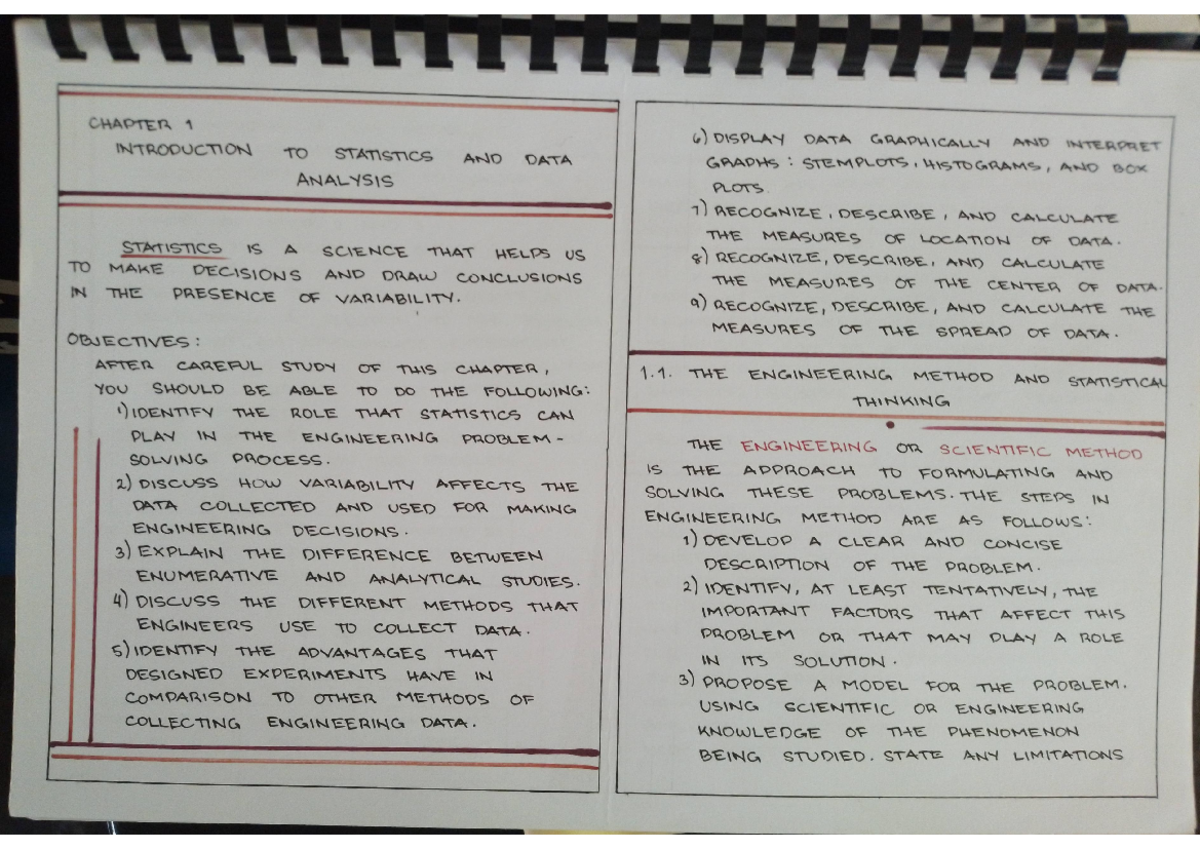 CHAPTER 1
INTRODUCTION TO STATISTICS AND DATA
ANALYSIS
STATISTICS IS A SCIENCE THAT HELPS US
TO MAKE DECISIONS AND DRAW CONCLUSIONS
IN THE PRESENCE OF VARIABILITY.
OBJECTIVES:
AFTER CAREFUL STUDY OF THIS CHAPTER,
YOU SHOULD BE ABLE TO DO THE FOLLOWING:
1) IDENTIFY THE ROLE THAT STATISTICS CAN
PLAY IN THE ENGINEERING PROBLEM-
SOLVING PROCESS.
2) DISCUSS HOW VARIABILITY AFFECTS THE
DATA COLLECTED AND USED FOR MAKING
ENGINEERING DECISIONS.
3) EXPLAIN THE DIFFERENCE BETWEEN
ENUMERATIVE AND ANALYTICAL STUDIES.
4) DISCUSS THE DIFFERENT METHODS THAT
ENGINEERS USE TO COLLECT DATA.
5) IDENTIFY THE ADVANTAGES THAT
DESIGNED EXPERIMENTS HAVE IN
COMPARISON TO OTHER METHODS OF
COLLECTING ENGINEERING DATA.
6) DISPLAY DATA GRAPHICALLY AND INTERPRET
GRAPHS: STEMPLOTS, HISTOGRAMS, AND BOX
PLOTS.
7) RECOGNIZE, DESCRIBE, AND CALCULATE
THE MEASURES OF LOCATION OF DATA.
8) RECOGNIZE, DESCRIBE, AND CALCULATE
THE MEASURES OF THE CENTER OF DATA.
9) RECOGNIZE, DESCRIBE, AND CALCULATE THE
MEASURES OF THE SPREAD OF DATA.
1.1. THE ENGINEERING METHOD AND STATISTICAL
THINKING
THE ENGINEERING OR SCIENTIFIC METHOD
IS THE APPROACH TO FORMULATING AND
SOLVING THESE PROBLEMS. THE STEPS IN
ENGINEERING METHOD ARE AS FOLLOWS:
1) DEVELOP A CLEAR AND CONCISE
DESCRIPTION OF THE PROBLEM.
2) IDENTIFY, AT LEAST TENTATIVELY, THE
IMPORTANT FACTORS THAT AFFECT THIS
PROBLEM OR THAT MAY PLAY A ROLE
IN ITS SOLUTION.
3) PROPOSE A MODEL FOR THE PROBLEM.
USING SCIENTIFIC OR ENGINEERING
KNOWLEDGE OF THE PHENOMENON
BEING STUDIED. STATE ANY LIMITATIONS